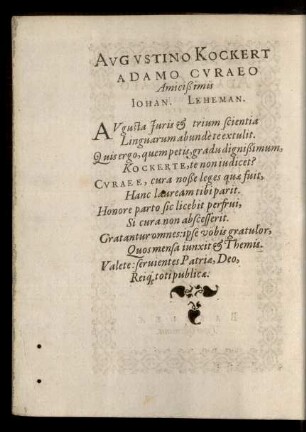 AVGVSTINO KOCKERT
ADAMO CVRAEO
Amicißimis
IOHAN. LEHEMAN.
AVgusta Juris & trium scientia
Linguarum abundè te extulit.
Quis ergo, quem petis, gradu dignißimum,
KOCKERTE, te non iudicet?
CVRAEE, cura noße leges quæ fuit,
Hanc lauream tibi parit.
Honore parto sic licebit perfrui,
Si cura non abscesserit.
Gratantur omnes: ipse vobis gratulor,
Quos mensa iunxit & Themis.
Valete: seruientes Patriæ, Deo,
Reiq́; toti publicæ.